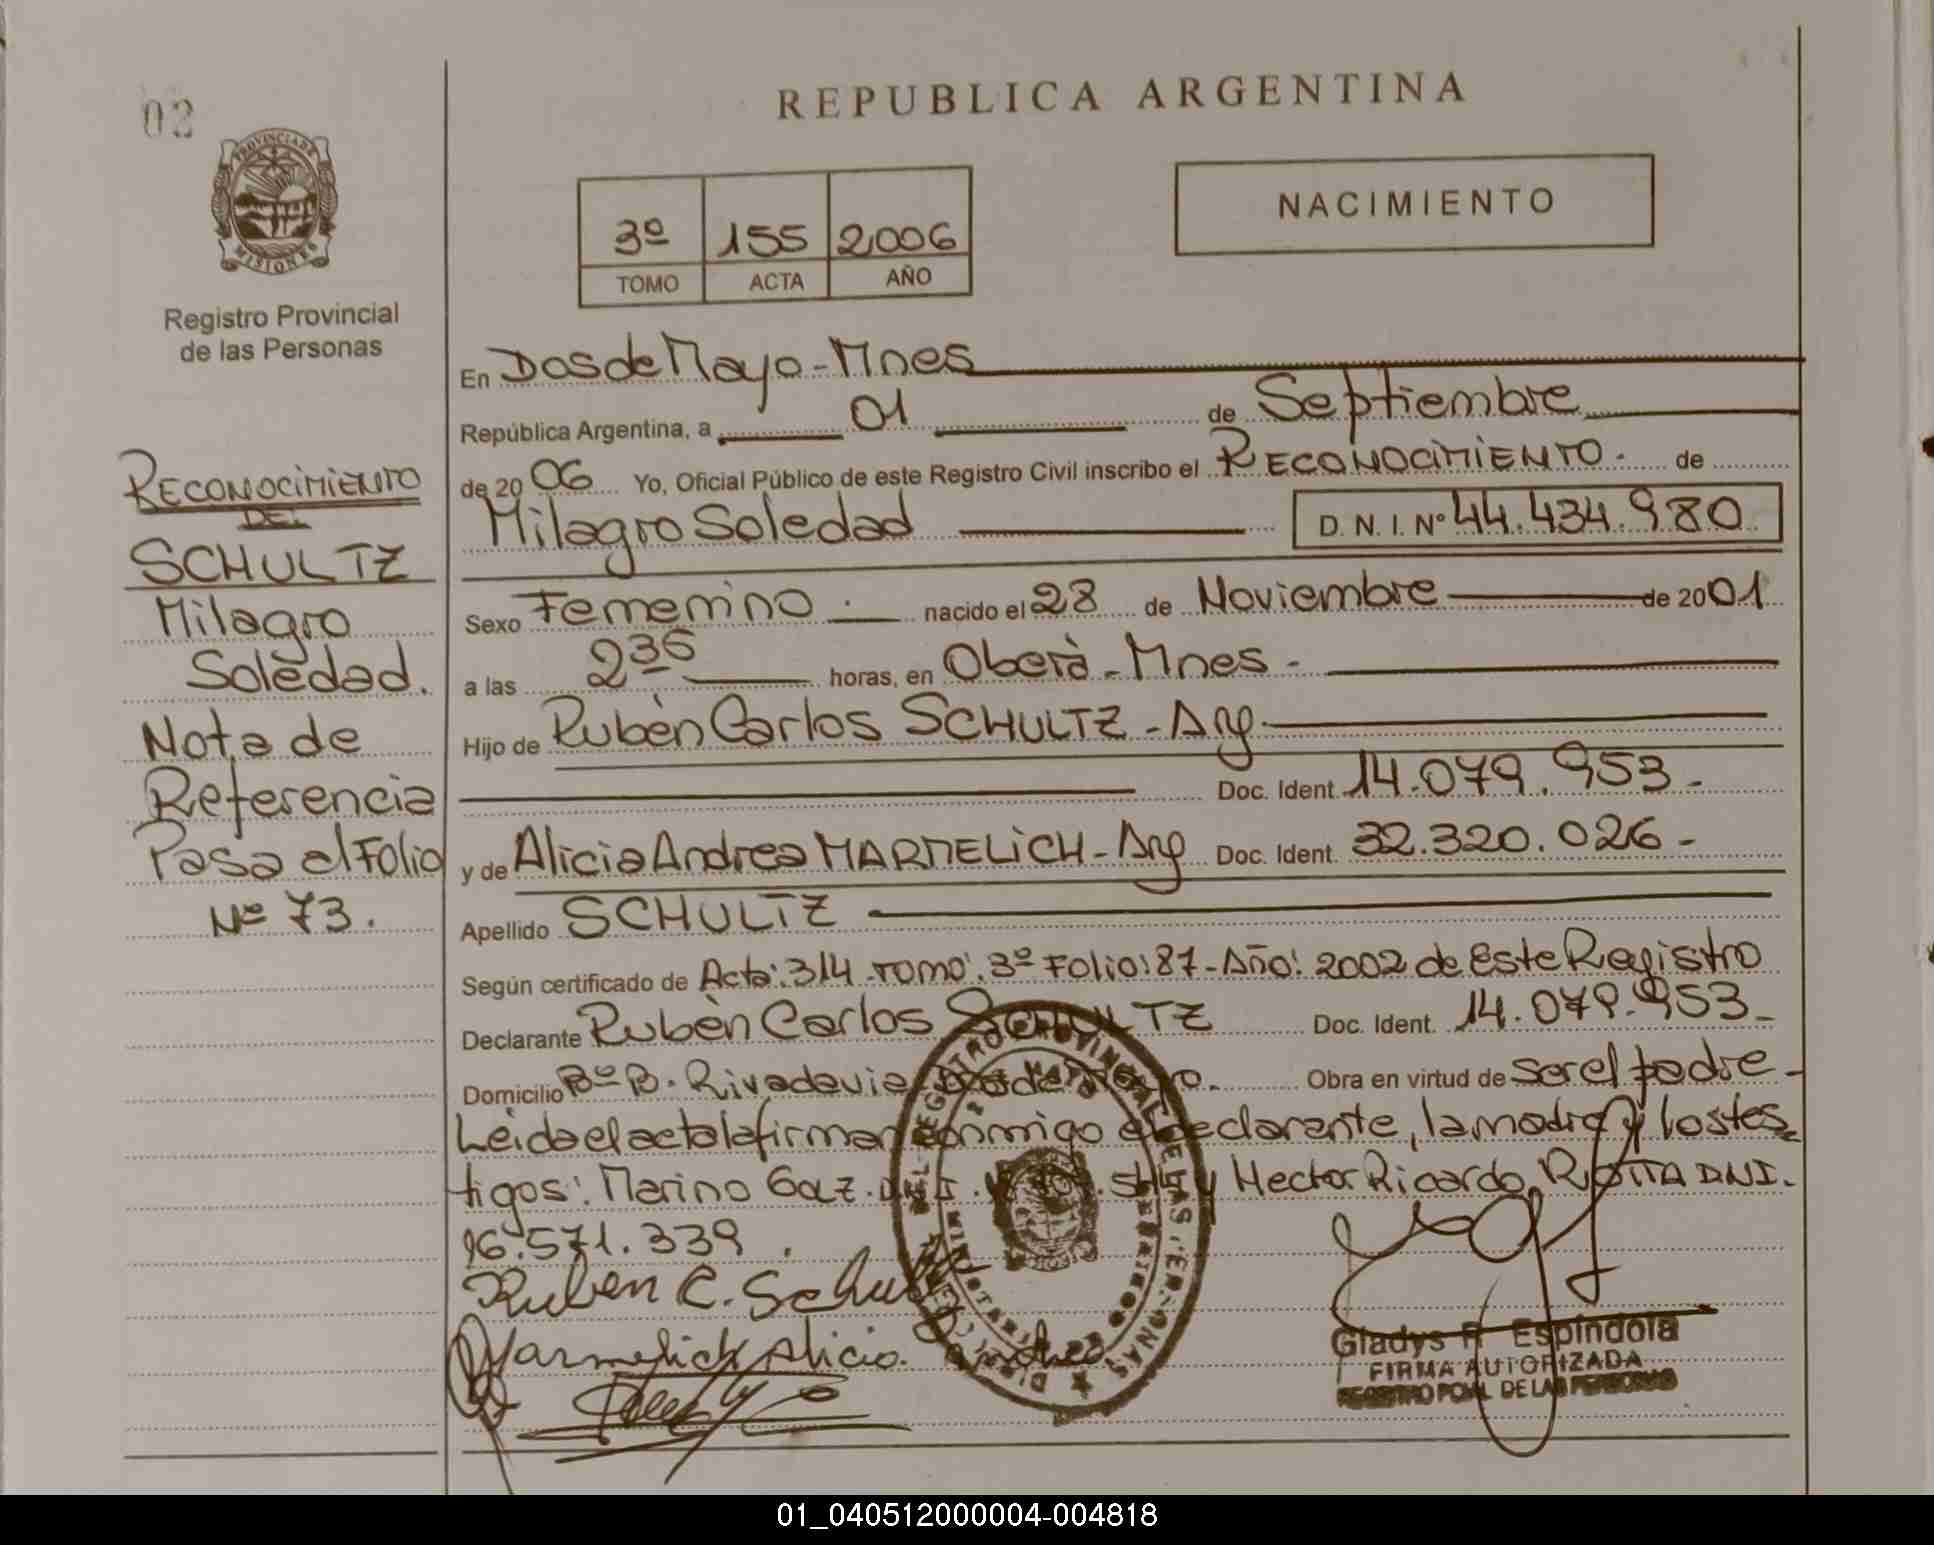 02
PROVINCIA DE
MISIONES
Registro Provincial
de las Personas
RECONOCIMIENTO
DE:
SCHULTZ
Milagro
Soledad.
Nota de
Referencia
Pasa al Folio
Nº 73.
REPUBLICA ARGENTINA
3º 155 2006
TOMO ACTA AÑO
NACIMIENTO
En Dos de Mayo - Mnes
República Argentina, a 01 de Septiembre
de 20 06 Yo, Oficial Público de este Registro Civil inscribo el RECONOCIMIENTO. de
Milagro Soledad D. N. I. Nº 44.434.980
Sexo Femenino. nacido el 28 de Noviembre de 20 01
a las 2 35 horas, en Oberà - Mnes -
Hijo de Rubèn Carlos SCHULTZ - Arg
Doc. Ident. 14.079.953 -
y de Alicia Andrea MARMELICH - Arg Doc. Ident. 32.320.026 -
Apellido SCHULTZ
Según certificado de Acta: 314 - Tomo: 3º Folio: 87 - Año: 2002 de Este Registro
Declarante Rubèn Carlos SCHULTZ Doc. Ident. 14.079.953 -
Domicilio Bº B. Rivadavia Dos de Mayo. Obra en virtud de ser el padre -
Leida el acta la firman conmigo el declarante, la madre y los tes
tigos: Marino Gaz. y Hector Ricardo DNI.
16.571.339.
Ruben C. Schultz
Marmelich Alicia Andrea
Gladys Espíndola
FIRMA AUTORIZADA
REGISTRO PCIAL DE LAS PERSONAS
01_040512000004-004818